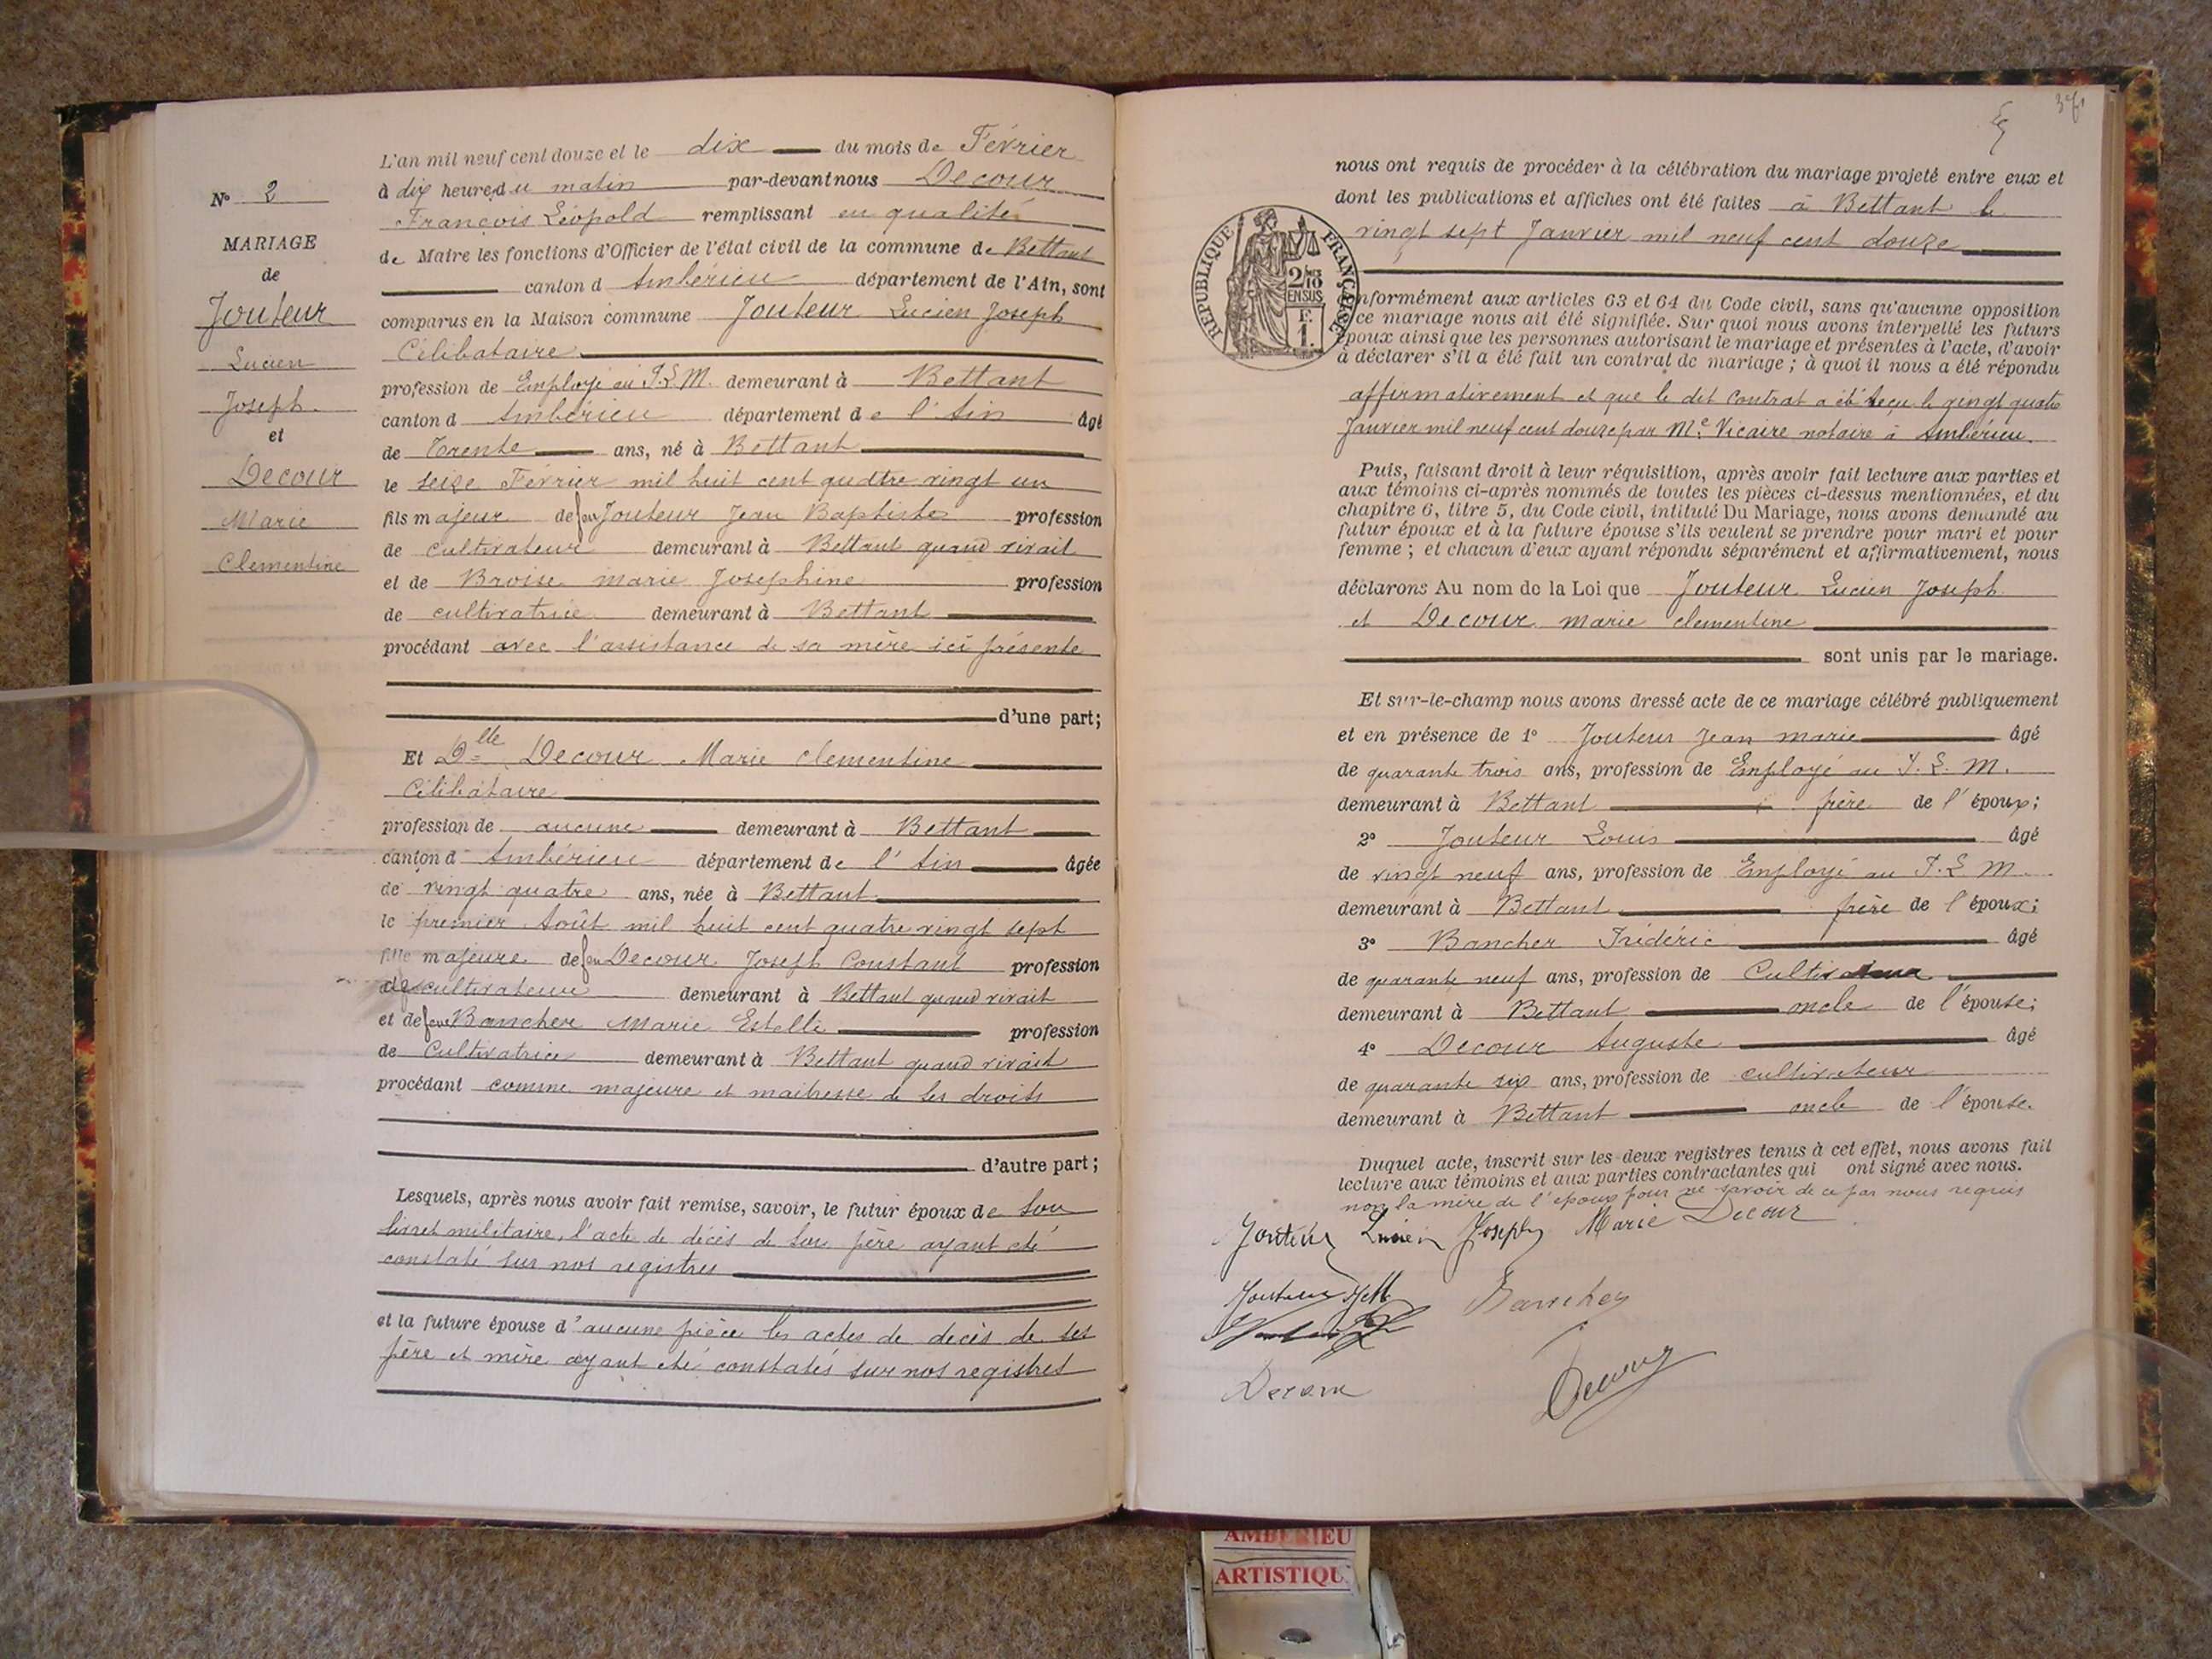 L'an mil neuf cent douze et le dix du mois de Février
à dix heures du matin par-devant nous Decour
François Léopold remplissant en qualité
de Maire les fonctions d'Officier de l'état civil de la commune de Bettant
canton d Ambérieu département de l'Ain, sont
comparus en la Maison commune Jouteur Lucien Joseph
Célibataire
profession de Employé au P.L.M. demeurant à Bettant
canton d Ambérieu département de l'Ain âgé
de Trente ans, né à Bettant
le seize Février mil huit cent quatre vingt un
fils majeur de feu Jouteur Jean Baptiste profession
de cultivateur demeurant à Bettant quand vivait
et de Broise marie Joséphine profession
de cultivatrice demeurant à Bettant
procédant avec l'assistance de sa mère ici présente
d'une part;
Et Dlle Decour Marie clementine
Célibataire
profession de aucune demeurant à Bettant
canton d Ambérieu département de l'Ain âgée
de vingt quatre ans, née à Bettant
le premier Août mil huit cent quatre vingt sept
fille majeure de feu Decour Joseph Constant profession
de cultivateur demeurant à Bettant quand vivait
et de feue Bancher Marie Estelle profession
de Cultivatrice demeurant à Bettant quand vivait
procédant comme majeure et maitresse de ses droits
d'autre part;
Lesquels, après nous avoir fait remise, savoir, le futur époux de son
livret militaire, l'acte de décès de son père ayant été
constaté sur nos registres
et la future épouse d'aucune pièce les actes de decès de ses
père et mère ayant été constatés sur nos registres
No 2
MARIAGE
de
Jouteur
Lucien
Joseph.
et
Decour
Marie
Clementine
371
nous ont requis de procéder à la célébration du mariage projeté entre eux et
dont les publications et affiches ont été faites à Bettant le
vingt sept Janvier mil neuf cent douze
RÉPUBLIQUE FRANÇAISE
2/10
EN SUS
F.
1.
nformément aux articles 63 et 64 du Code civil, sans qu'aucune opposition
ce mariage nous ait été signifiée. Sur quoi nous avons interpellé les futurs
époux ainsi que les personnes autorisant le mariage et présentes à l'acte, d'avoir
à déclarer s'il a été fait un contrat de mariage ; à quoi il nous a été répondu
affirmativement et que le dit contrat a été reçu le vingt quatre
Janvier mil neuf cent douze par Me Vicaire notaire à Ambérieu.
Puis, faisant droit à leur réquisition, après avoir fait lecture aux parties et
aux témoins ci-après nommés de toutes les pièces ci-dessus mentionnées, et du
chapitre 6, titre 5, du Code civil, intitulé Du Mariage, nous avons demandé au
futur époux et à la future épouse s'ils veulent se prendre pour mari et pour
femme ; et chacun d'eux ayant répondu séparément et affirmativement, nous
déclarons Au nom de la Loi que Jouteur Lucien Joseph
et Decour marie clementine
sont unis par le mariage.
Et sur-le-champ nous avons dressé acte de ce mariage célébré publiquement
et en présence de 1° Jouteur Jean marie âgé
de quarante trois ans, profession de Employé au P. L. M.
demeurant à Bettant frère de l'époux;
2° Jouteur Louis âgé
de vingt neuf ans, profession de Employé au P. L M
demeurant à Bettant frère de l'époux;
3° Bancher Frédéric âgé
de quarante neuf ans, profession de Cultivateur
demeurant à Bettant oncle de l'épouse;
4° Decour Auguste âgé
de quarante six ans, profession de cultivateur
demeurant à Bettant oncle de l'épouse.
Duquel acte, inscrit sur les deux registres tenus à cet effet, nous avons fait
lecture aux témoins et aux parties contractantes qui ont signé avec nous.
non la mère de l'epoux pour ne savoir de ce par nous requis
Jouteur Lucien Joseph Marie Decour
Jouteur Bancher
Decour
Decour
AMBERIEU
ARTISTIQU